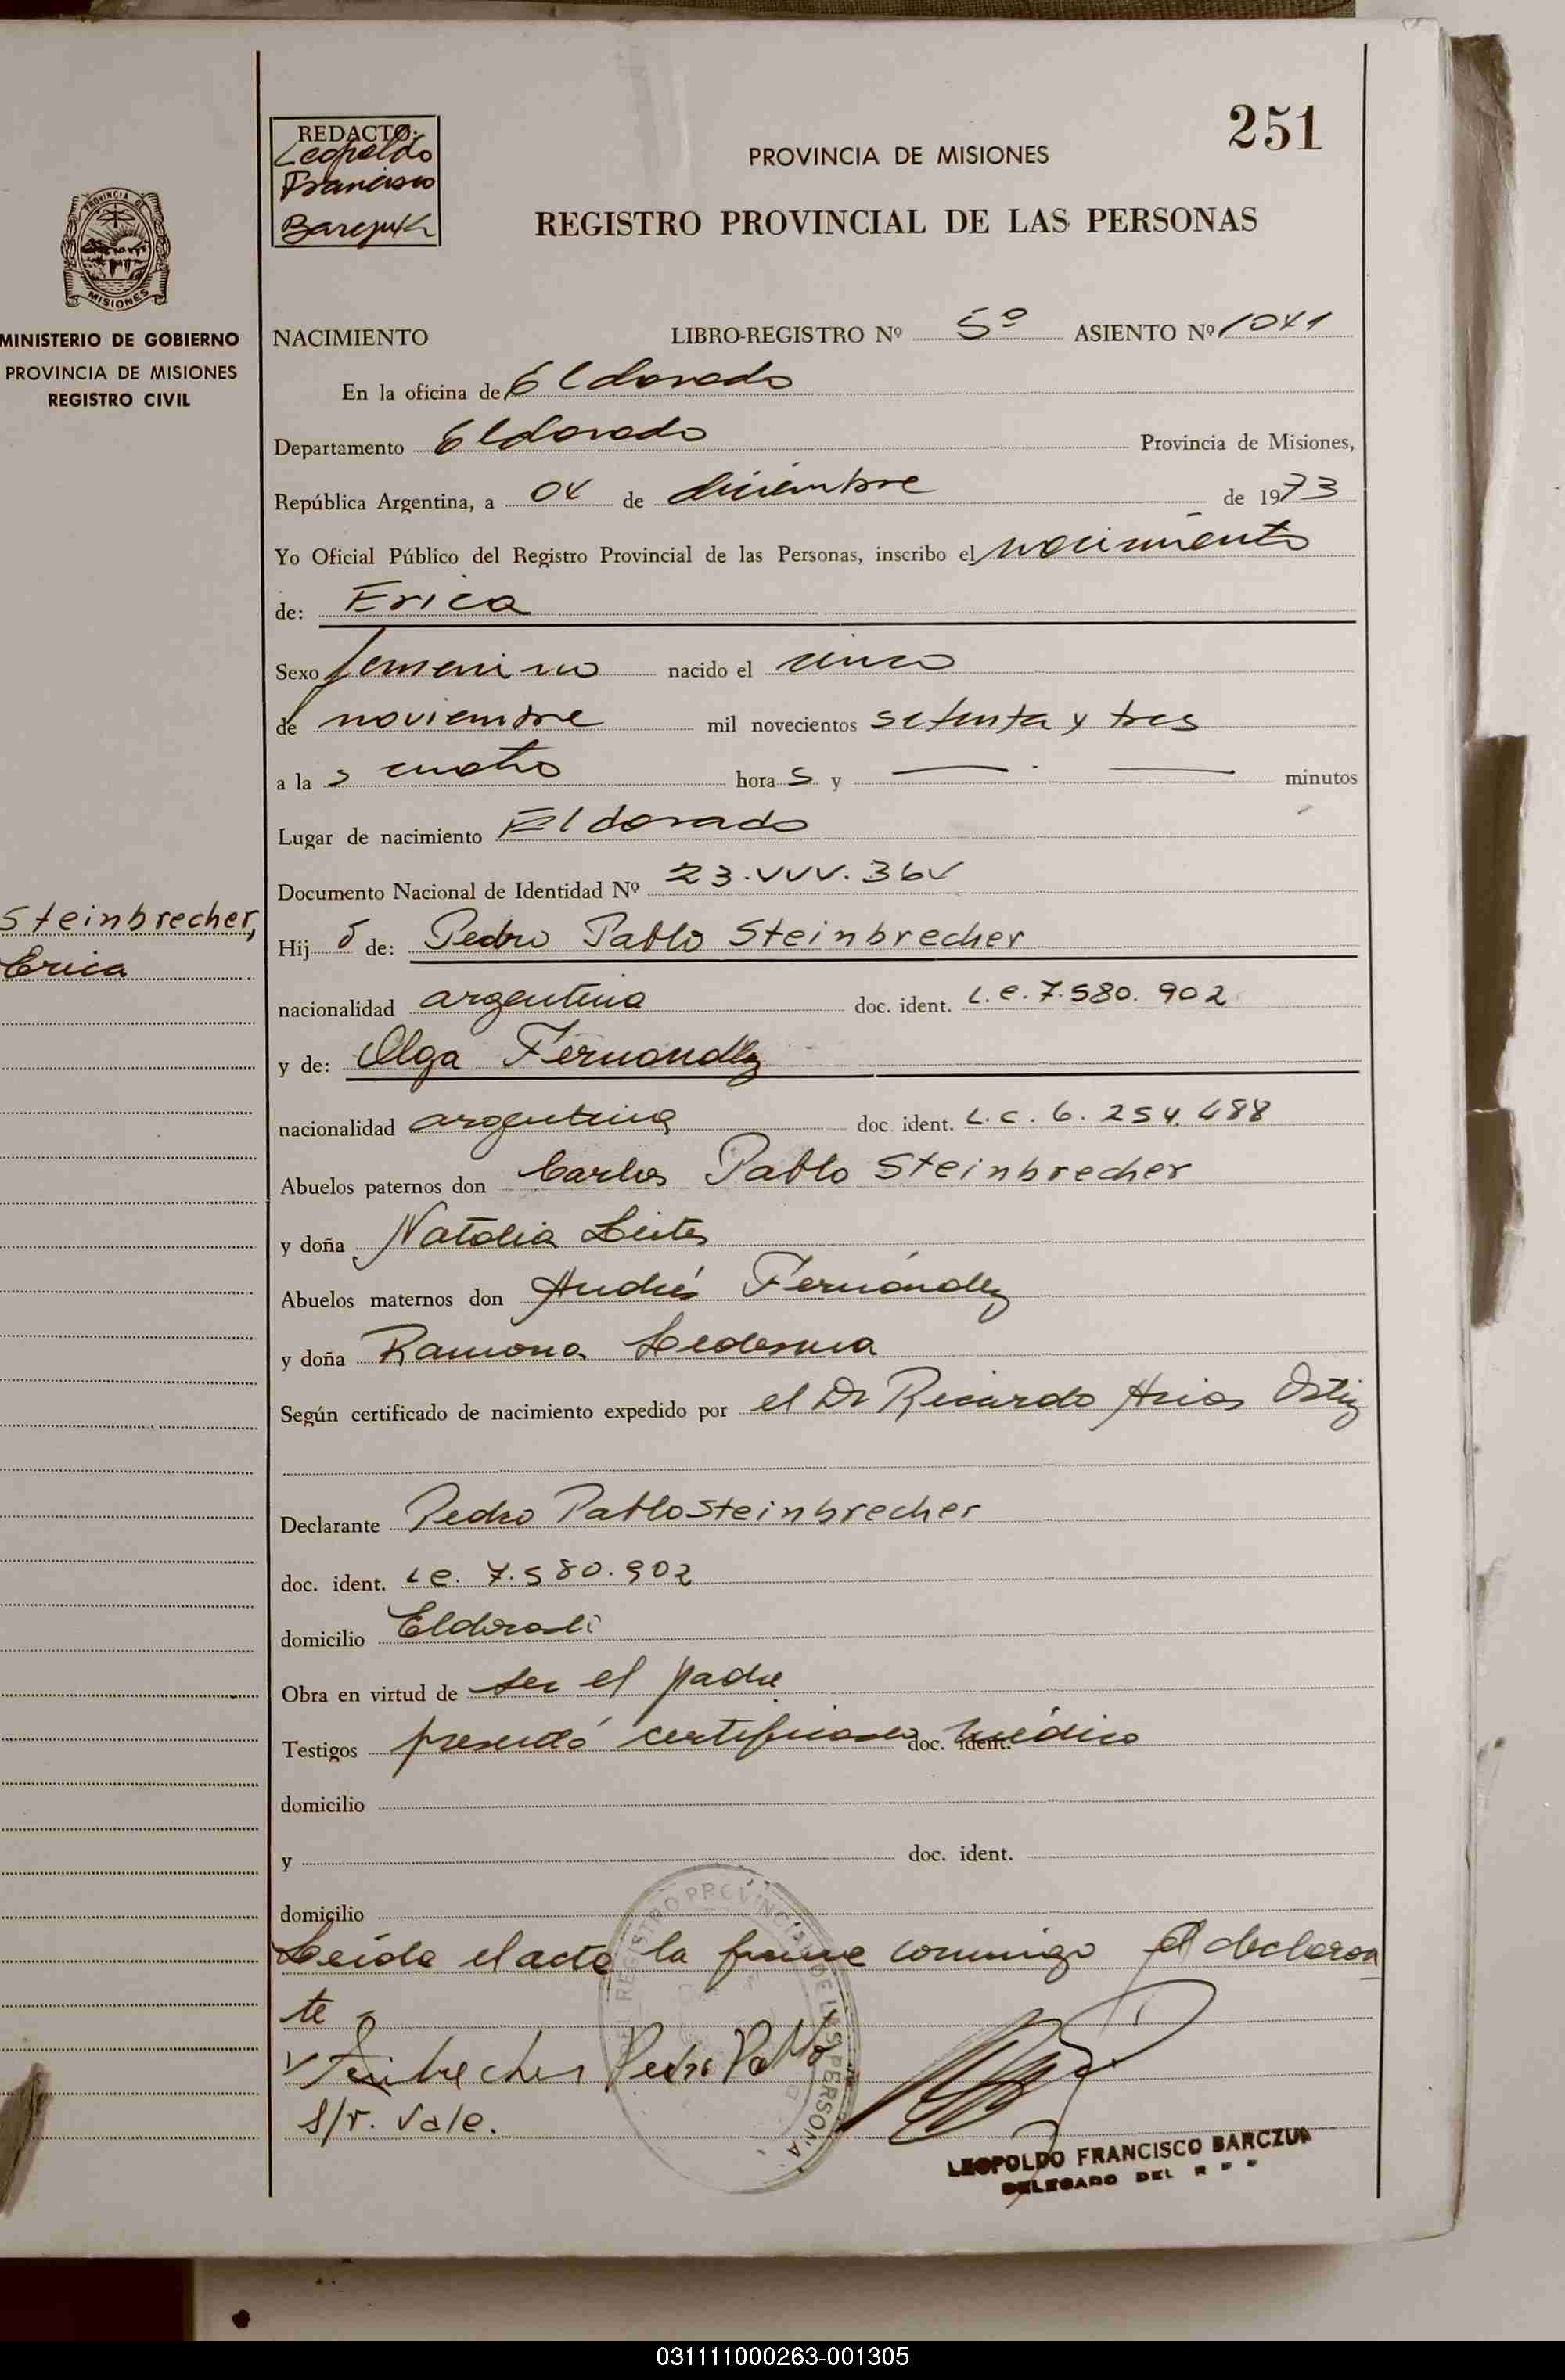 251
REDACTO:
Leopoldo
Francisco
Barczuk
PROVINCIA DE MISIONES
REGISTRO PROVINCIAL DE LAS PERSONAS
PROVINCIA DE
MISIONES
MINISTERIO DE GOBIERNO
PROVINCIA DE MISIONES
REGISTRO CIVIL
Steinbrecher,
Erica
NACIMIENTO LIBRO-REGISTRO Nº 5º ASIENTO Nº 1041
En la oficina de Eldorado
Departamento Eldorado Provincia de Misiones,
República Argentina, a 04 de diciembre de 1973
Yo Oficial Público del Registro Provincial de las Personas, inscribo el nacimiento
de: Erica
Sexo femenino nacido el cinco
de noviembre mil novecientos setenta y tres
a la s cuatro hora s y — . — minutos
Lugar de nacimiento Eldorado
Documento Nacional de Identidad Nº 23.444.364
Hij a de: Pedro Pablo Steinbrecher
nacionalidad argentina doc. ident. L.e. 7.580.902
y de: Olga Fernandez
nacionalidad argentina doc. ident. L.c. 6.254.488
Abuelos paternos don Carlos Pablo Steinbrecher
y doña Natalia Leites
Abuelos maternos don Andrés Fernández
y doña Ramona Ledesma
Según certificado de nacimiento expedido por el Dr Ricardo Arias Ortiz
Declarante Pedro Pablo Steinbrecher
doc. ident. Le. 7.580.902
domicilio Eldorado
Obra en virtud de ser el padre
Testigos presentó certificado doc. ident. médico
domicilio
y doc. ident.
domicilio
Leida el acta la firma conmigo el declaran
te
Steinbrecher Pedro Pablo
s/r. vale.
REGISTRO PROVINCIAL DE LAS PERSONA
LEOPOLDO FRANCISCO BARCZUK
DELEGADO DEL R P P
031111000263-001305